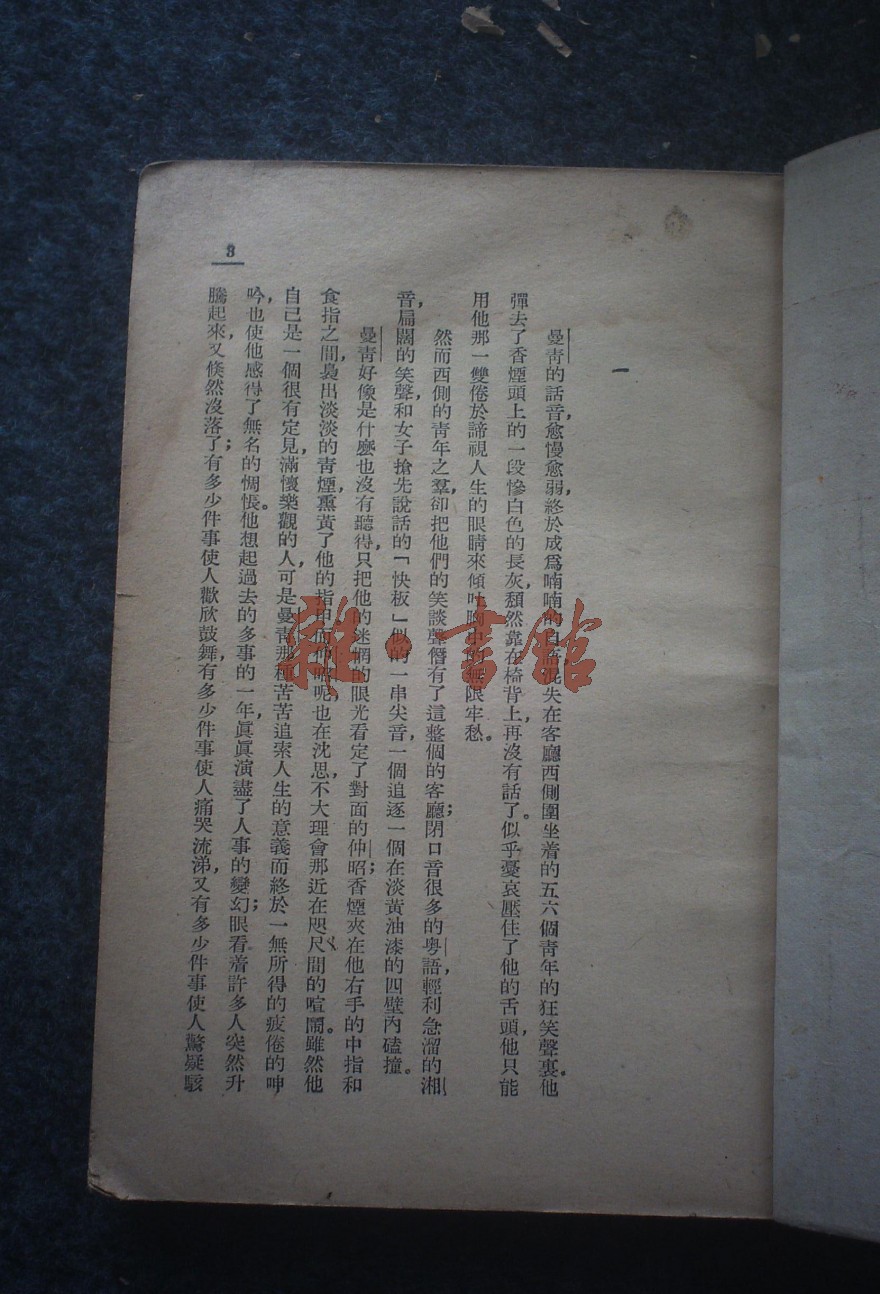 3
一
曼靑的話音愈慢愈弱,終於成爲喃喃的自語,混失在客廳西側圍坐着的五六個靑年的狂笑聲裏。他
彈去了香煙頭上的一段慘白色的長灰,頹然靠在椅背上,再沒有話了。似乎憂哀壓住了他的舌頭,他只能
用他那一雙倦於諦視人生的眼睛來傾吐胸中的無限牢愁。
然而西側的靑年之羣,卻把他們的笑談聲僭有了這整個的客廳;閉口音很多的粵語,輕利急溜的湘
音,扁闊的笑聲,和女子搶先說話的「快板」似的一串尖音,一個追逐一個在淡黃油漆的四壁內磕撞。
曼靑好像是什麼也沒有聽得,只把他的迷惘的眼光看定了對面的仲昭;香煙夾在他右手的中指和
食指之間,裊出淡淡的靑煙,熏黃了他的指甲。而仲昭呢,也在沈思,不大理會那近在咫尺間的喧鬧。雖然他
自己是一個很有定見,滿懷樂觀的人,可是曼靑那種苦苦追索人生的意義而終於一無所得的疲倦的呻
吟,也使他感得了無名的惆悵。他想起過去的多事的一年,眞眞演盡了人事的變幻;眼看着許多人突然升
騰起來,又倏然沒落了;有多少件事使人歡欣鼓舞,有多少件事使人痛哭流涕,又有多少件事使人驚疑駭
雜·書館